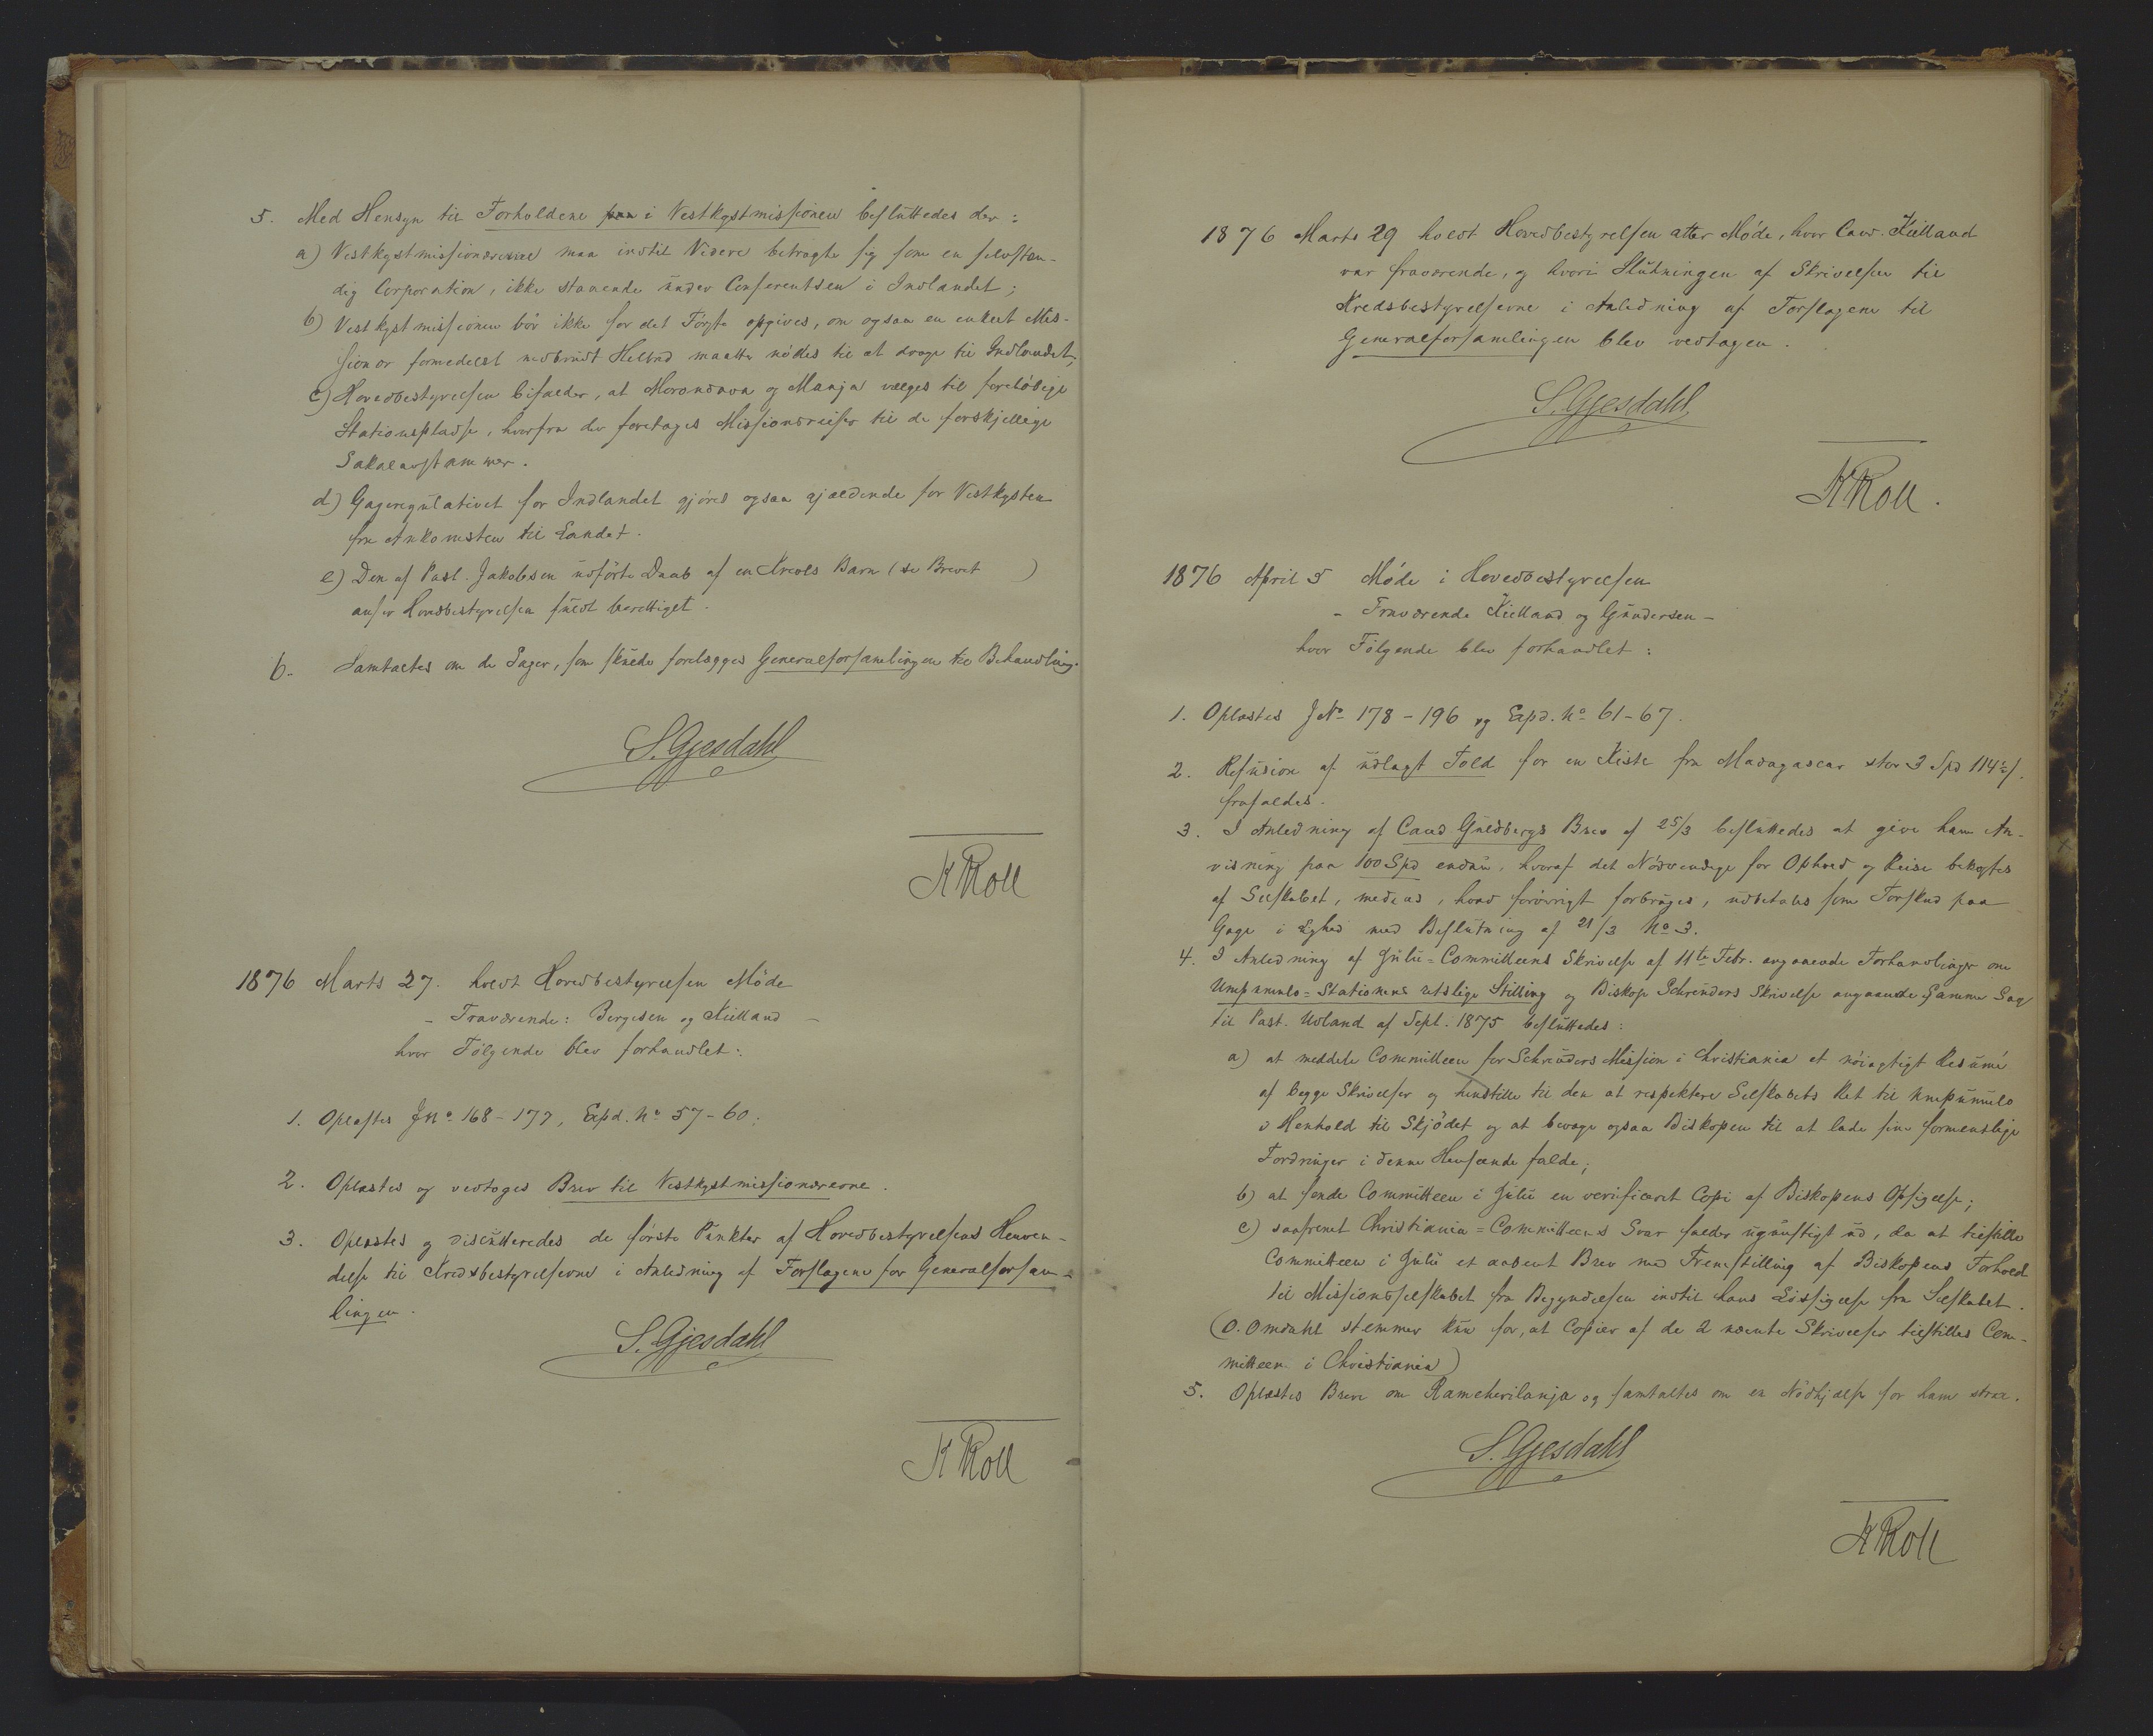 5. Med Hensyn til Forholdene paa i Vestkystmissionen besluttedes der:
a) Vestkystmissionærerne maa indtil Videre betragte sig som en selvstæn-
dig Corporation, ikke staaende under Conferentsen i Indlandet;
b) Vestkystmissionen bör ikke for det Förste opgives, om ogsaa en enkelt Mis-
sionær formedelst nedbrudt Helbred maatte nödes til at drage til Indlandet;
c) Hovedbestyrelsen bifalder, at Morondava og Manja vælges til forelöbige
Stationspladse, hvorfra der foretages Missionsreiser til de forskjellige
Sakalavstammer.
d) Gageregulativet for Indlandet gjöres ogsaa gjældende for Vestkysten
fra Ankomsten til Landet.
e) Den af Past. Jakobsen udförte Daab af en Kreols Barn (se Brevet )
anser Hovedbestyrelsen fuldt berettiget.
6. Samtaltes om de Sager, som skulde forelægges Generalforsamlingen til Behandling.
S. Gjesdahl
K Roll
1876 Marts 27. holdt Hovedbestyrelsen Möde
- Fraværende: Borgesen og Kielland -
hvor Fölgende blev forhandlet:
1. Oplæstes J No 168-177, Expd. No 57-60;
2. Oplæstes og vedtoges Brev til Vestkystmissionærerne.
3. Oplæstes og discutteredes de förste Punkter af Hovedbestyrelsens Henven-
delse til Kredsbestyrelserne i Anledning af Forslagene for Generalforsam-
lingen.
S. Gjesdahl
K Roll
1876 Marts 29 holdt Hovedbestyrelsen atter Möde, hvor Cand. Kielland
var fraværende, og hvori Slutningen af Skrivelsen til
Kredsbestyrelserne i Anledning af Forslagene til
Generalforsamlingen blev vedtagen.
S. Gjesdahl
K Roll.
1876 April 5 Möde i Hovedbestyrelsen
- Fraværende Kielland og Gundersen -
hvor Fölgende blev forhandlet:
1. Oplæstes J No 178-196 og Expd. No 61-67.
2. Refusion af udlagt Told for en Kiste fra Madagascar stor 3 Spd 114 ß.
frafaldes.
3. I Anledning af Cand Guldbergs Brev af 25/3 besluttedes at give ham An-
visning paa 100 Spd endnu, hvoraf det Nödvendige for Ophold og Reise bekostes
af Selskabet, medens, hvad forövrigt forbruges, udbetales som Forskud paa
Gage i Lighed med Beslutning af 21/3 No 3.
4. I Anledning af Zulu-Committeens Skrivelse af 11te Febr. angaaende Forhandlinger om
Umpumulo-Stationens retslige Stilling og Biskop Schreuders Skrivelse angaaende samme Sag
til Past. Udland af Sept. 1875 besluttedes:
a) at meddele Committeen for Schreuders Mission i Christiania et nöiagtigt Resumé
af begge Skrivelser og henstille til den at respektere Selskabets Ret til Umpumulo
i Henhold til Skjödet og at bevæge ogsaa Biskopen til at lade sine formentlige
Fordringer i denne Henseende falde;
b) at sende Committeen i Zulu en verificeret Copi af Biskopens Opsigelse;
c) saafremt Christiania-Committeens Svar falder ugunstigt ud, da at tilstille
Committeen i Zulu et aabent Brev med Fremstilling af Biskopens Forhold
til Missionsselskabet fra Begyndelsen indtil hans Lössigelse fra Selskabet.
(O. Omdahl stemmer kun for, at Copier af de 2 nævnte Skrivelser tilstilles Com-
mitteen i Christiania)
5. Oplæstes Breve om Rameherilanja og samtaltes om en Nödhjælp for ham strax.
S. Gjesdahl
K Roll